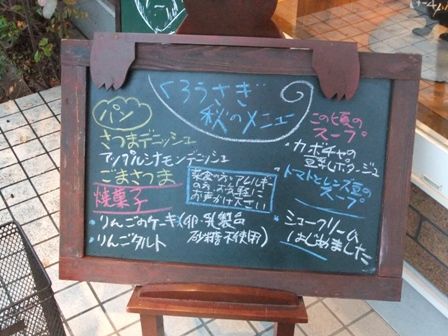 くろうさぎ
秋のメニュー
パン
さつまデニッシュ
アップルシナモンデニッシュ
ごまさつま
焼菓子
・りんごのケーキ(卵・乳製品
砂糖不使用)
・りんごタルト
菜食の方・アレルギー
の方、お気軽に
お声かけ下さい
この頃の
スープ
・カボチャの
豆乳ポタージュ
・トマトとレンズ豆の
スープ
・シュークリーム
はじめました